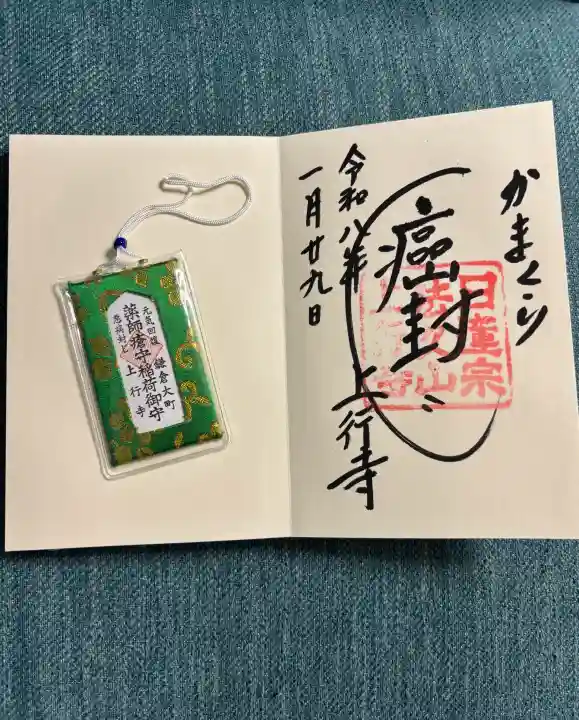 かまくら
癌封じ
上行寺
令和八年
一月廿九日
日蓮宗
元気回復
悪病封じ
薬師瘡守稲荷御守
鎌倉大町
上行寺